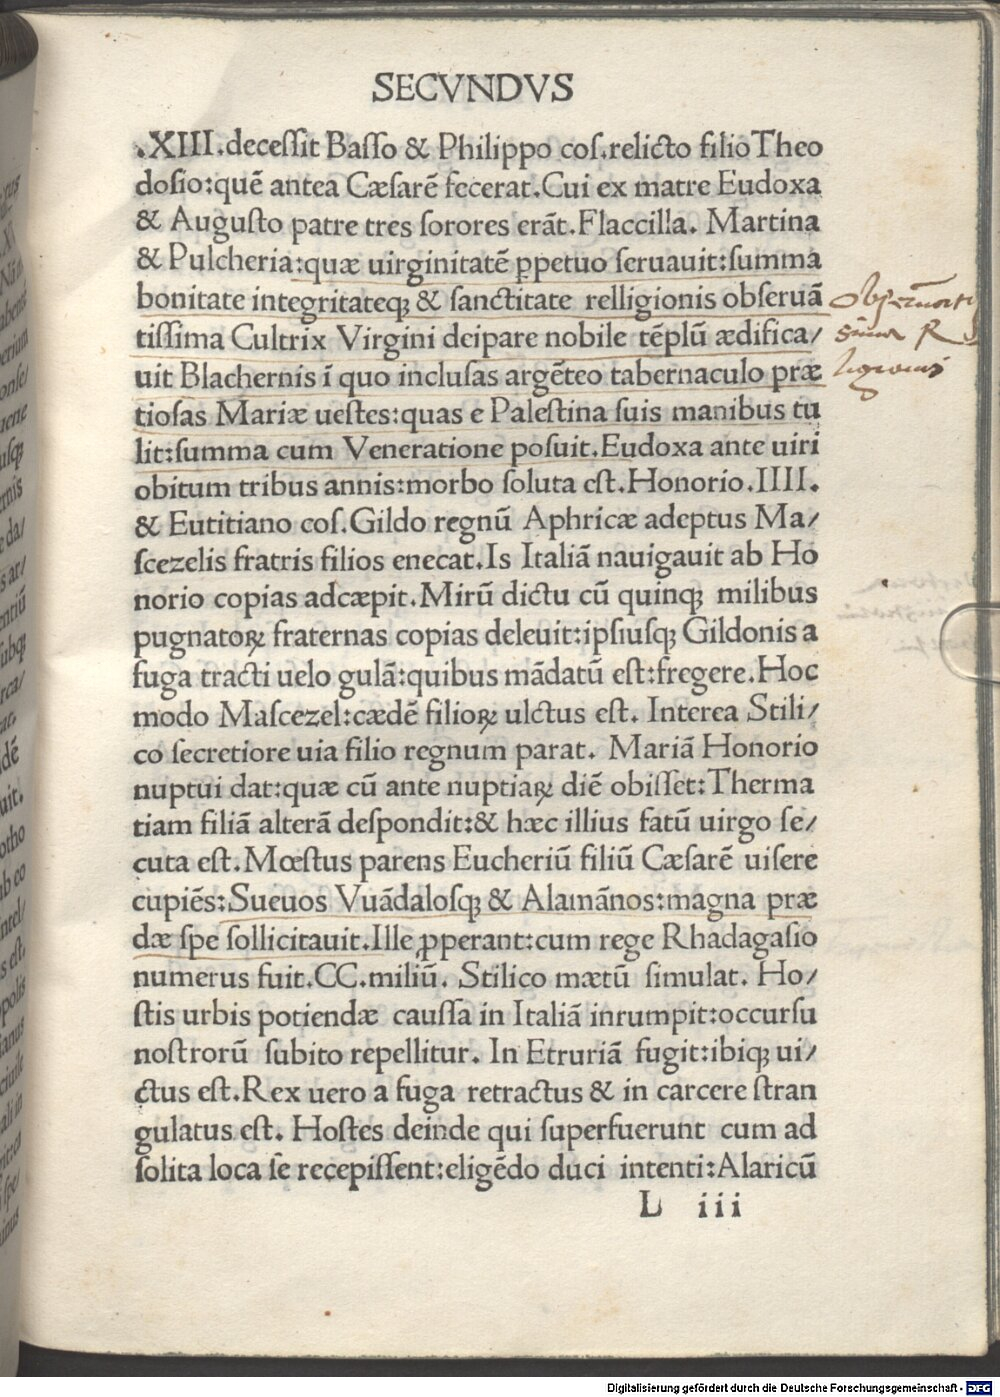 SECVNDVS
.XIII.deceſſit Baſſo & Philippo coſ.relicto filio Theo
doſio:quē antea Cæſarē fecerat.Cui ex matre Eudoxa
& Auguſto patre tres ſorores erāt.Flaccilla. Martina
& Pulcheria:quæ uirginitatē ꝑpetuo ſeruauit:ſumma
bonitate integritateqꝫ & ſanctitate relligionis obſeruā
tiſſima Cultrix Virgini deipare nobile tēplū ædifica/
uit Blachernis ī quo incluſas argēteo tabernaculo præ
tioſas Mariæ ueſtes:quas e Paleſtina ſuis manibus tu
lit:ſumma cum Veneratione poſuit.Eudoxa ante uiri
obitum tribus annis:morbo ſoluta eſt.Honorio.IIII.
& Eutitiano coſ.Gildo regnū Aphricæ adeptus Ma/
ſcezelis fratris filios enecat.Is Italiā nauigauit ab Ho
norio copias adcæpit.Mirū dictu cū quinqꝫ milibus
pugnatoꝝ fraternas copias deleuit:ipſiuſqꝫ Gildonis a
fuga tracti uelo gulā:quibus mādatū eſt:fregere.Hoc
modo Maſcezel:cædē filioꝝ ulctus eſt. Interea Stili/
co ſecretiore uia filio regnum parat. Mariā Honorio
nuptui dat:quæ cū ante nuptiaꝝ diē obiſſet:Therma
tiam filiā alterā deſpondit:& hæc illius fatū uirgo ſe/
cuta eſt.Mœſtus parens Eucheriū filiū Cæſarē uiſere
cupiēs:Sueuos Vuādaloſqꝫ & Alamānos:magna præ
dæ ſpe ſollicitauit.Ille ꝓperant:cum rege Rhadagaſio
numerus fuit.CC.miliū. Stilico mætū ſimulat. Ho/
ſtis urbis potiendæ cauſſa in Italiā inrumpit:occurſu
noſtrorū ſubito repellitur. In Etruriā fugit:ibiqꝫ ui/
ctus eſt.Rex uero a fuga retractus & in carcere ſtran
gulatus eſt. Hoſtes deinde qui ſuperfuerunt cum ad
ſolita loca ſe recepiſſent:eligēdo duci intenti:Alaricū
L iii
Digitalisierung gefördert durch die Deutsche Forschungsgemeinschaft - DFG